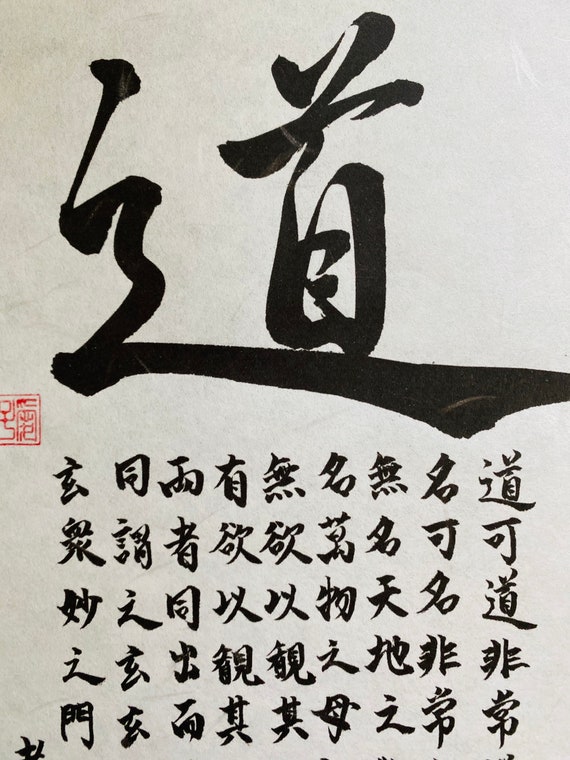 道
道可道非常
名可名非常
無名天地之
名萬物之母
無欲以観其
有欲以観其
兩者同出而
同謂之玄玄
玄衆妙之門